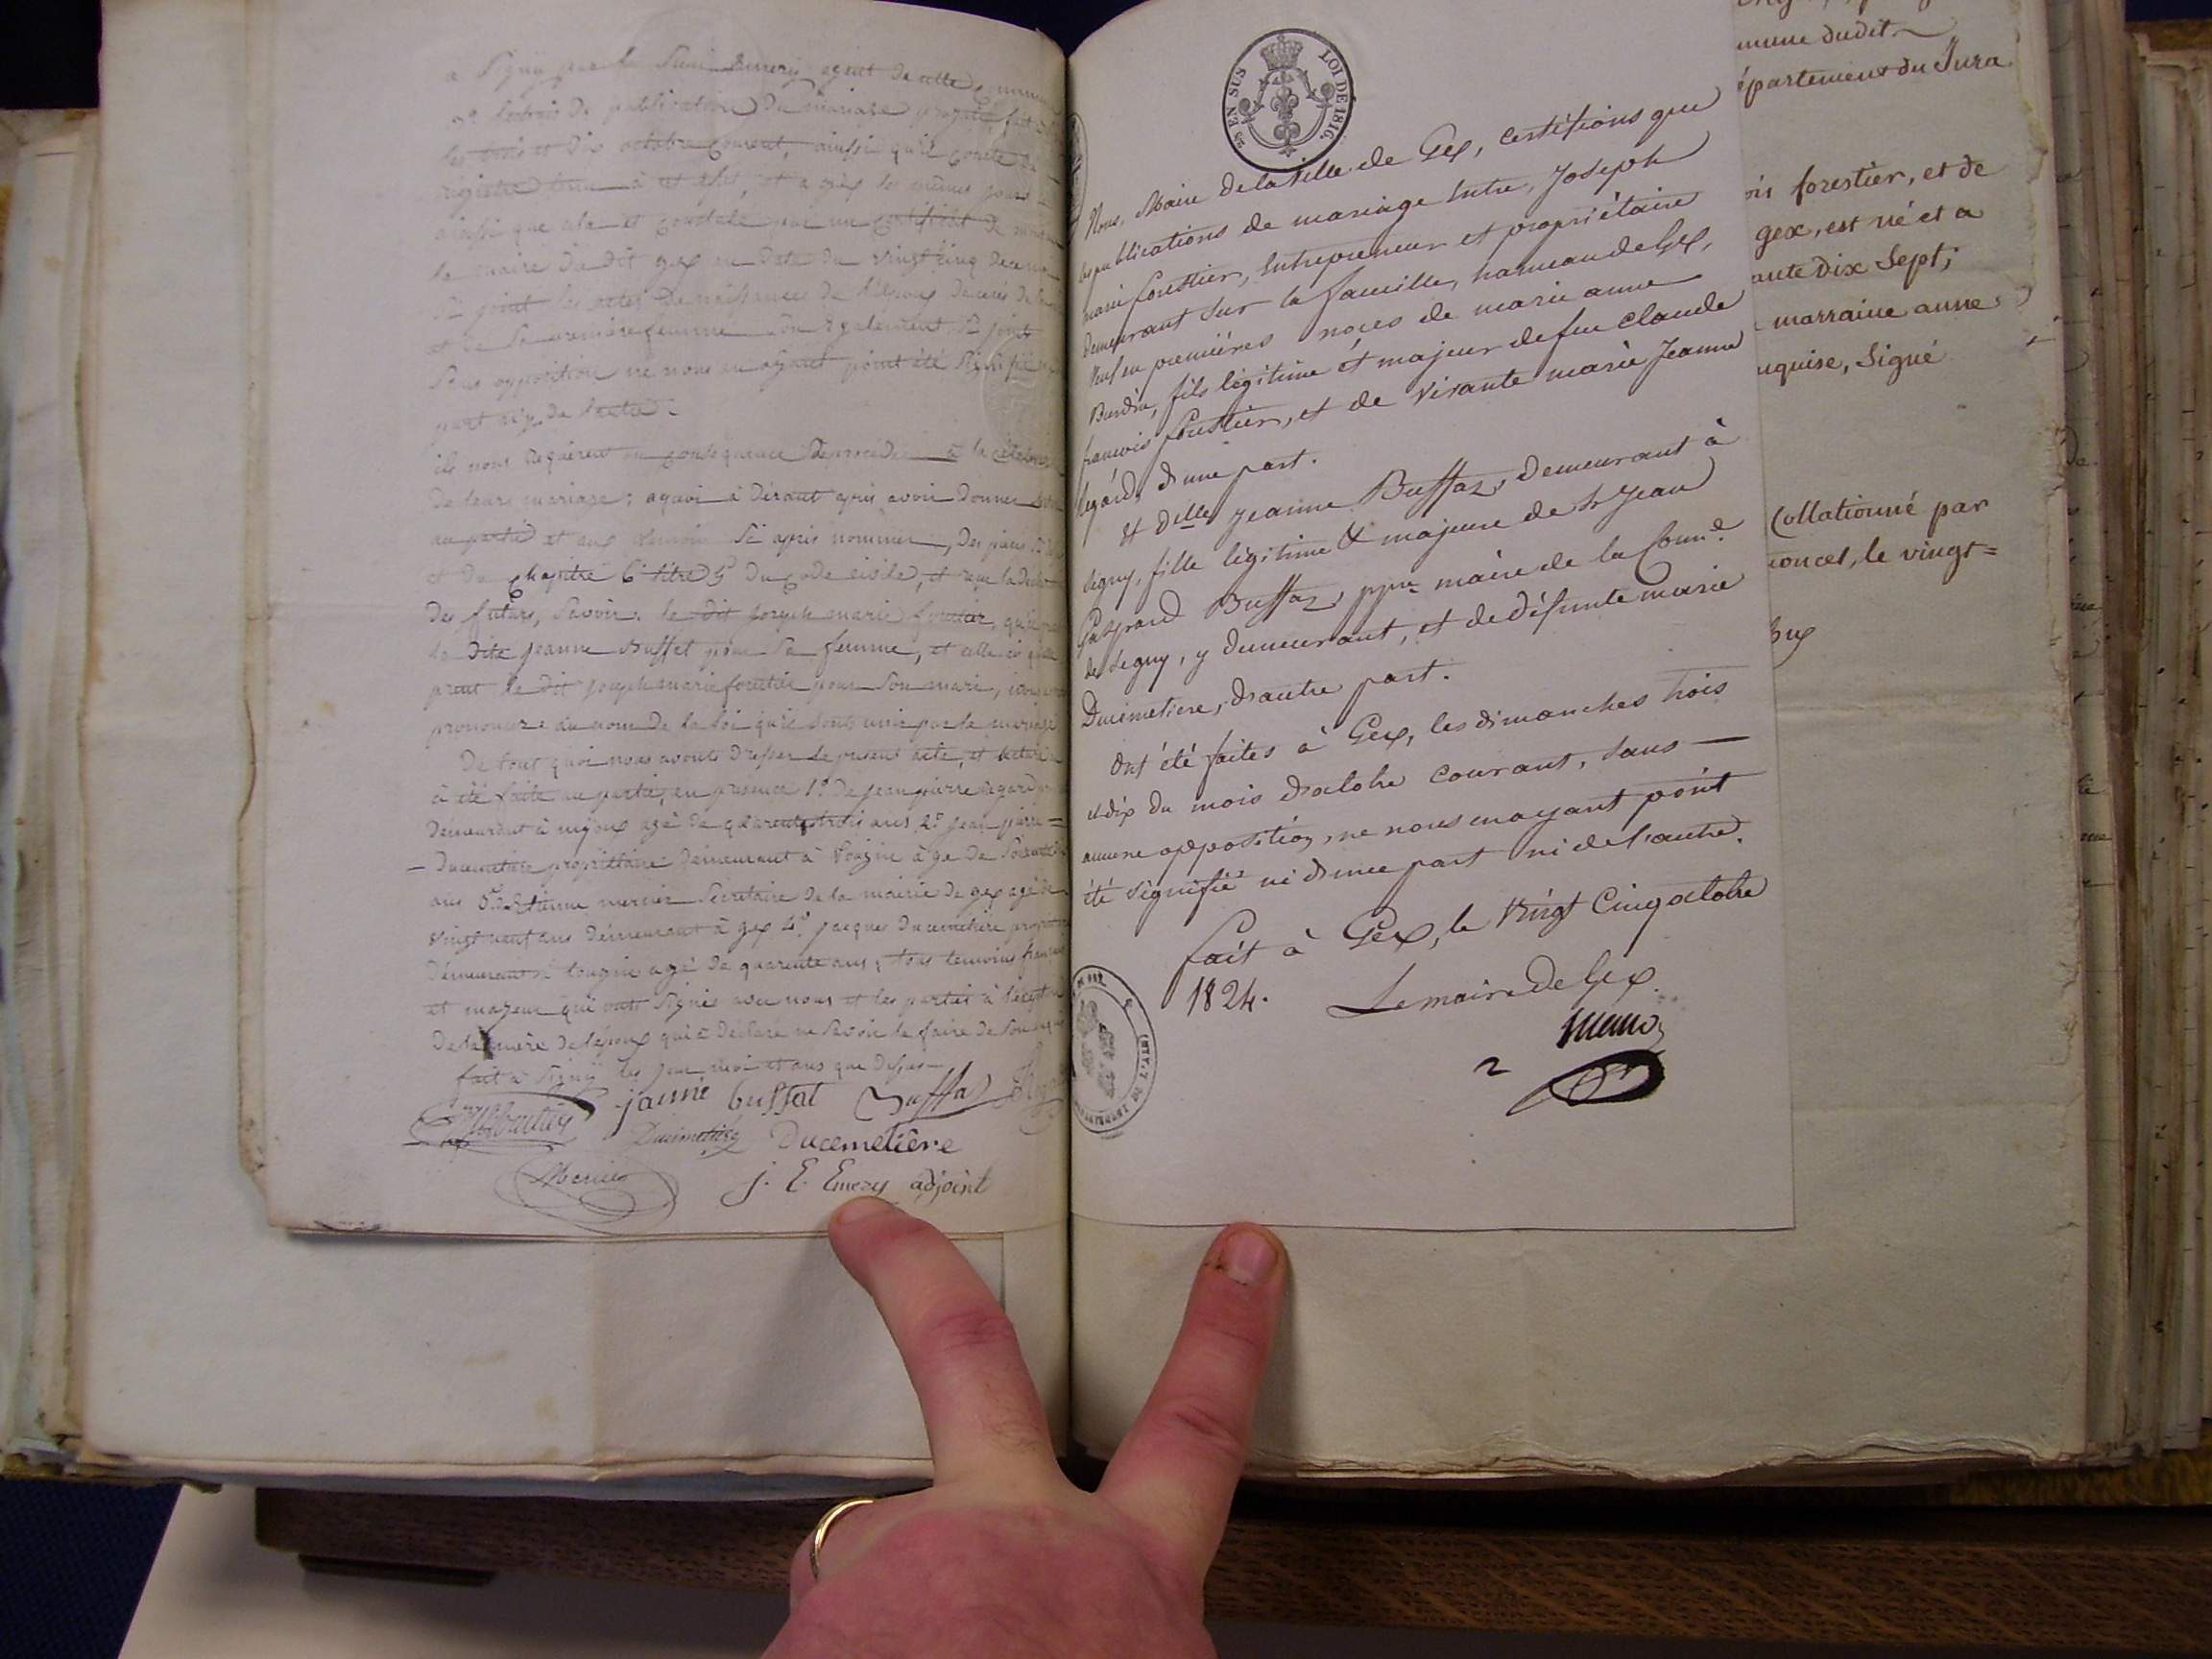 a Signy par le Sieur Emery agent de cette Commune
2º l'extrait de publication du mariage projeté fait à
les trois et dix octobre courant, ainsi qu'il conste du
registre tenu à cet effet, et a gex les mêmes jours
ainsi que cela est constaté par un certificat de
le maire du dit gex en date du vingt cinq
Ci joint les actes de naissance de l'époux
et de sa première femme sont également ci joint
Sans opposition ne nous en ayant point été signifié
part n'y de l'autre.
ils nous requèrent en consequence de procéder à la célébration
de leurs mariage; aquoi à dérant apris avoir donner
au partie et aux témoins ci apris nommer, des pieces
et du chapitre 6 titre 5 du code civile, et reçu la
des futurs, savoir. le dit joseph marie foretier, qu'il
la dite jeanne Buffat pour sa femme, et celle ci quelle
prent le dit joseph marie foretier pour son mari,
prononcer au nom de la loi qu'ils sont unis par le mariage
De tout quoi nous avons dresser le present acte, et lecture
à été faite au partie, en présence 1º de jean pierre Regard
demeurant à mijoux agé de quarente trois ans 2º jean pierre =
— Ducimetiere propriettaire demeurant à Tougin âge de Soixante
ans 3º Etienne mercier Secretaire de la mairie de gex agé de
vingt neuf ans demeurant à gex 4º jacques Ducimetiere
demeurant à tougin agé de quarente ans; tous temoins français
et majeur qui ont signés avec nous et les parties à l'exeption
de la mère de l'époux qui à déclaré ne savoir le faire de son
fait à Signy les jour, moi et ans que dessus —
janne buffat Buffat
Ducimetiere Ducemetière
Mercier j. E. Emery adjoint
25 EN SUS LOI DE 1816.
Nous, Maire de la Ville de Gex, certifions que
les publications de mariage entre, Joseph
marie fouttier, Entrepreneur et propriétaire
demeurant sur la faucille, hameau de Gex,
Veuf en premières noces de marie anne
Burdin, fils légitime et majeur de feu claude
francois fouttier, et de vivante marie Jeanne
Regard, d'une part.
Et Delle Jeanne Buffaz, demeurant à
segny, fille légitime & majeure de Sr Jean
Gaspard Buffaz, pprre maire de la Comne
de segny, y demeurant, et de défunte marie
Ducimetiere, d'autre part.
Ont été faites à Gex, les dimanches trois
et dix du mois d'octobre courant, sans —
aucune opposition, ne nous en ayant point
été signifié ni d'une part ni de l'autre.
fait à Gex, le vingt Cinq octobre
1824. Le maire De Gex.
mune dudit
épartement du Jura
ois forestier, et de
gex, est né et a
ante dix Sept;
marraine anne
uquise, Signé
Collationné par
oncel, le vingt =